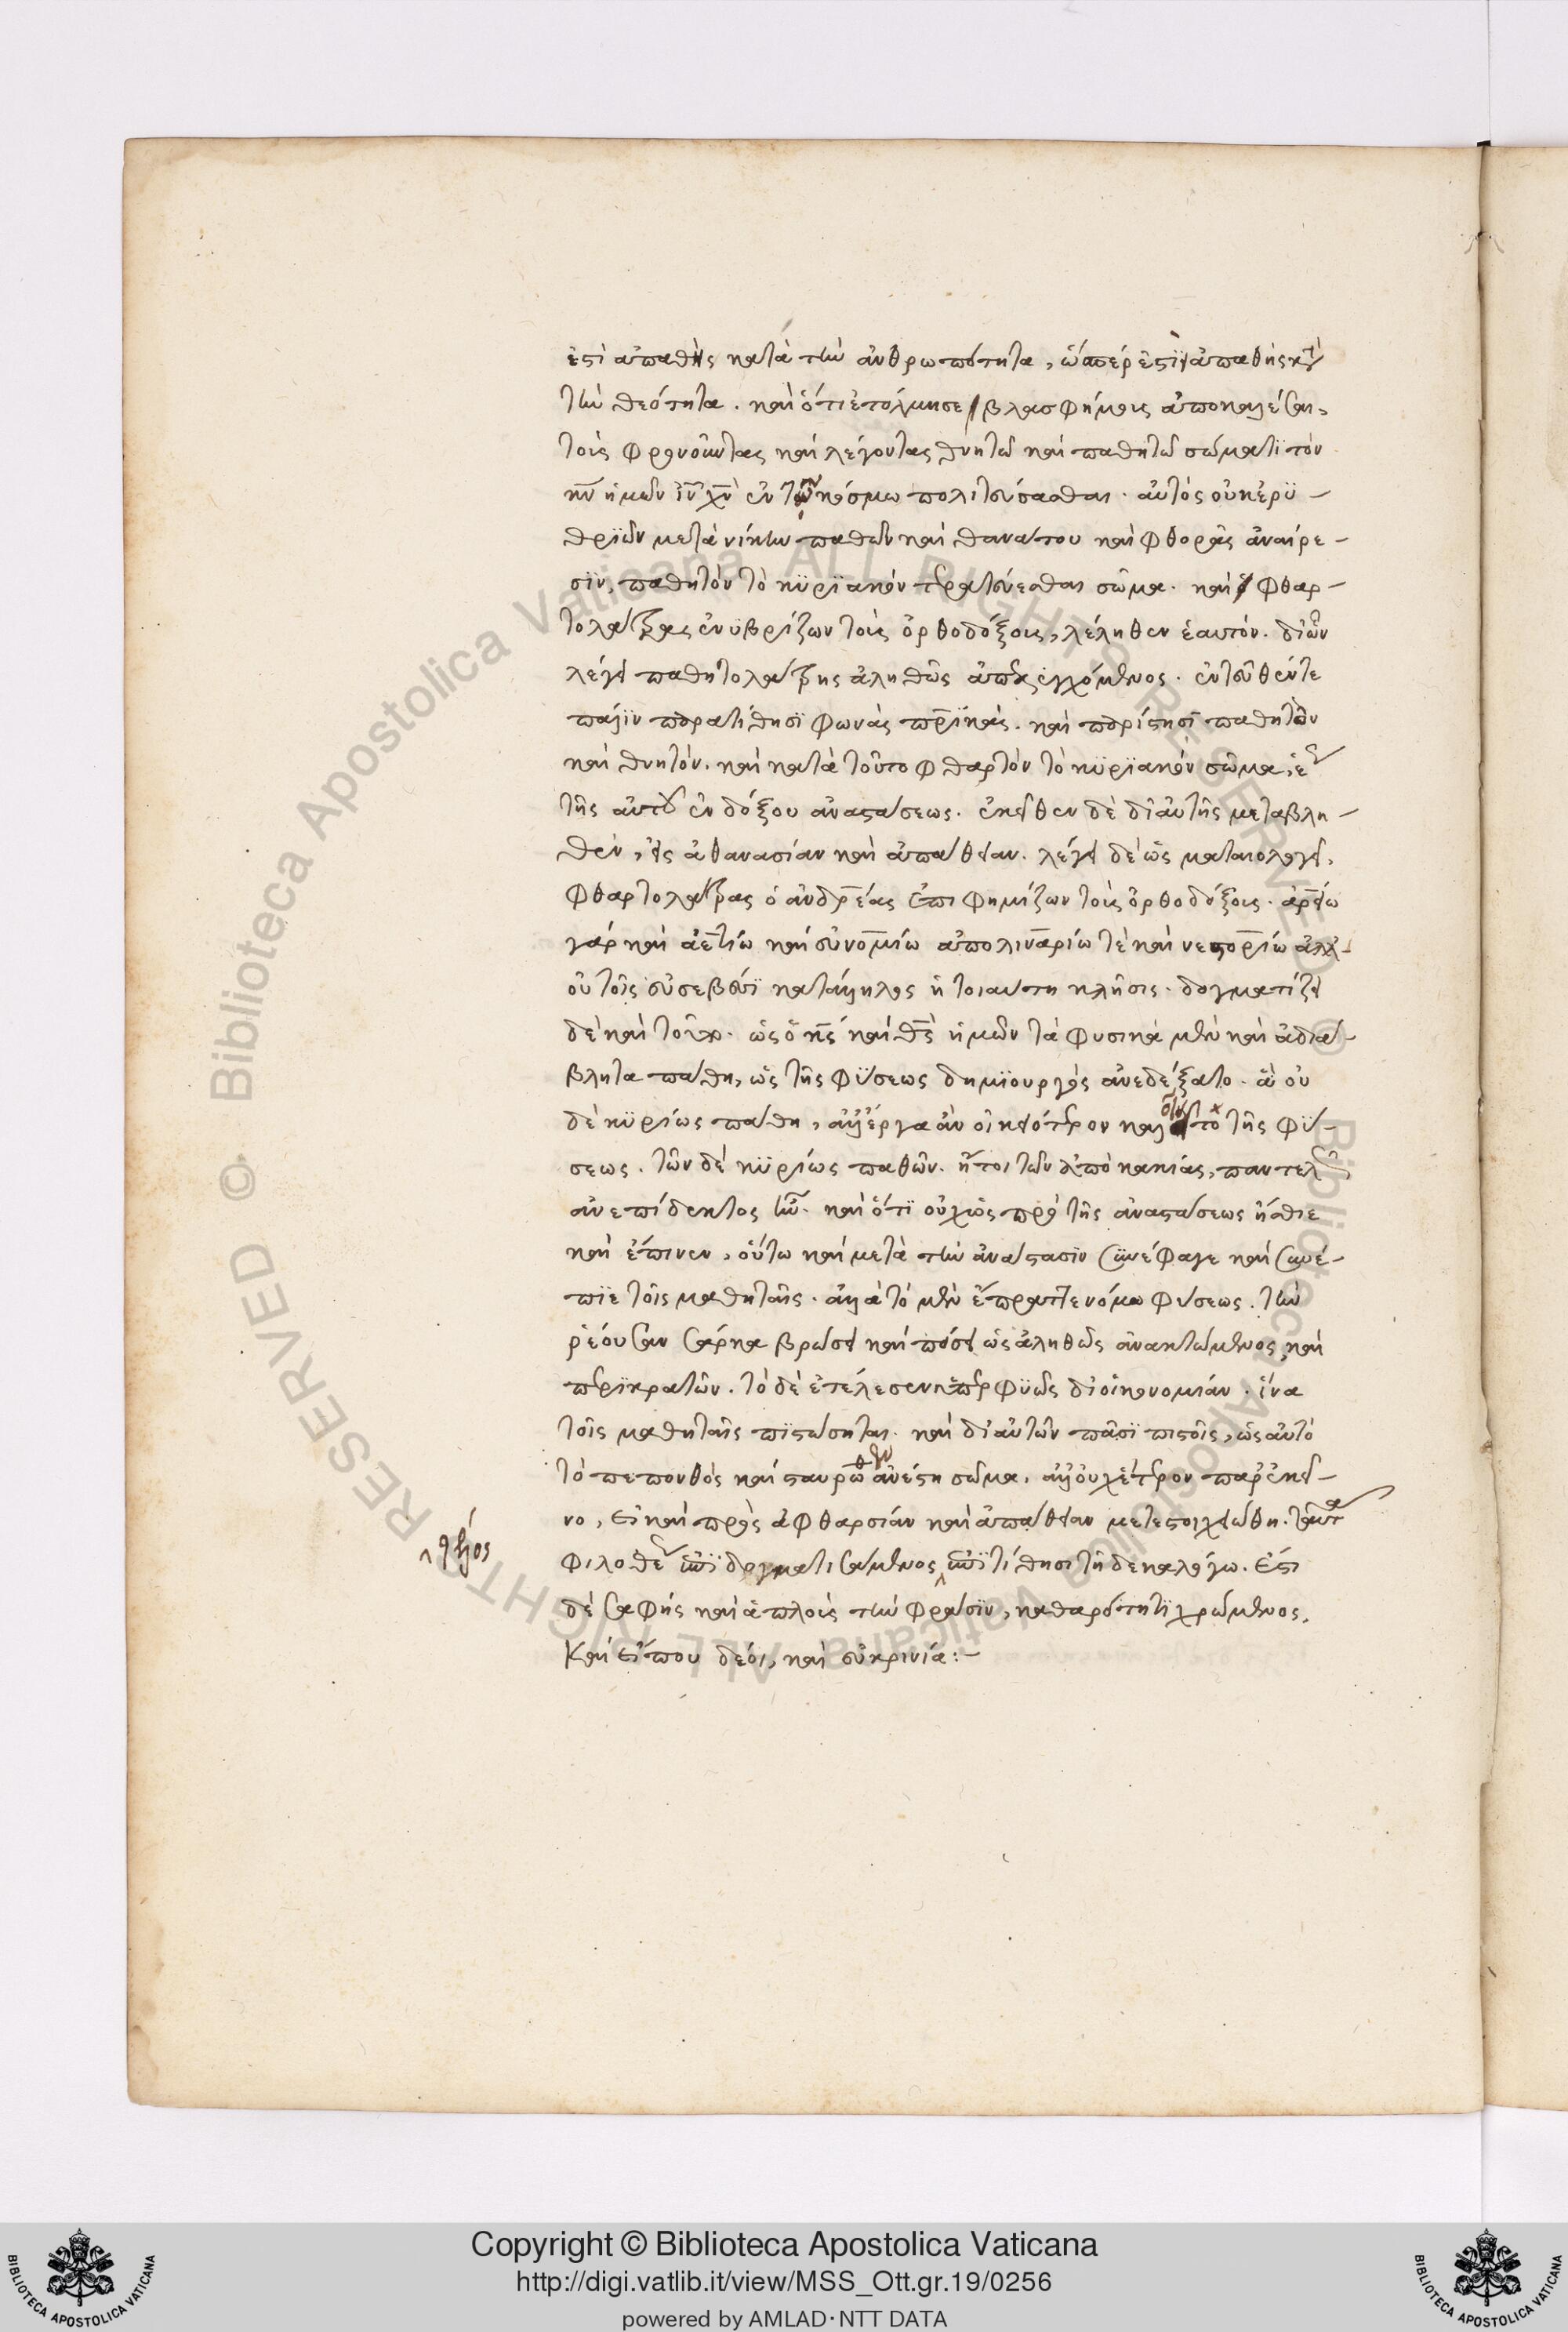 ἐστὶ ἀπαθὴς κατὰ τὴν ἀνθρωπότητα, ὥσπερ ἐστὶ ἀπαθὴς κατὰ
τὴν θεότητα. καὶ ὅτι ἐτόλμησε βλασφήμοις ἀποκαλέσαι,
τοὺς φρονοῦντας καὶ λέγοντας θνητῶ καὶ παθητῶ σώματι τὸν
κν̅ ἡμῶν ιν̅ χν̅ ἐν τῶ κόσμω πολιτεύσασθαι. αὐτὸς οὐκ ἐρϋ-
θριῶν μετὰ νίκην παθῶν καὶ θανάτου καὶ φθορᾶς ἀναίρε-
σϊν, παθητὸν τὸ κϋριακὸν τερατεύεσθαι σῶμα. καὶ φθαρ-
τολάτρας ἐνϋβρίζων τοὺς ὀρθοδόξους, λέληθεν ἑαυτόν. δι' ὧν
λέγει παθητολάτρης ἀληθῶς ἀπελεγχόμενος. ἐντεῦθέν τε
πάλϊν παρατίθησϊ φωνὰς πρϊκὰς. καὶ παρίστησϊ παθητὸν
καὶ θνητὸν. καὶ κατὰ τοῦτο φθαρτὸν τὸ κϋρϊακὸν σῶμα, ἕως
τῆς αὐτοῦ ἐνδόξου ἀναστάσεως. ἐκεῖθεν δὲ δι' αὐτῆς μεταβλη-
θὲν, εἰς ἀθανασίαν καὶ ἀπάθειαν. λέγει δὲ ὡς ματαιολογεῖ,
φθαρτολάτρας ὁ ἀνδρέας ἐπιφημίζων τοὺς ὀρθοδόξους. ἀρείω
γὰρ καὶ ἀετίω καὶ εὐνομίω ἀπολιναρίω τὲ καὶ νεστορίω ἀλλ'
οὐ τοῖς εὐσεβέσϊ κατάλληλος ἡ τοιαύτη κλῆσις. δογματίζει
δὲ καὶ τοῦτο. ὡς ὁ κς̅ καὶ θς̅ ἡμῶν τὰ φυσικὰ μὲν καὶ ἀδιά-
βλητα πάθη, ὡς τῆς φύσεως δημϊουργὸς ἀνεδέξατο. ἃ οὐ
δὲ κϋρίως πάθη, ἀλλ' ἔργα ἂν οἰκειότερον καλοῖντο τῆς φύ-
σεως. τῶν δὲ κϋρίως παθῶν. ἤτοι τῶν ἀπὸ κακίας, παντελῶς
ἀνεπίδεκτος ἦν. καὶ ὅτϊ οὐχ ὡς πρὸ τῆς ἀναστάσεως ἤσθιε
καὶ ἔπινεν, οὕτω καὶ μετὰ τὴν ἀνάστασϊν συνέφαγε καὶ συνέ-
πϊε τοῖς μαθηταῖς. ἀλλὰ τὸ μὲν ἔπραττε νόμω φύσεως. τὴν
ῥέουσαν σάρκα βρώσει καὶ πόσει ὡς ἀληθῶς ἀνακτώμενος καὶ
περϊκρατῶν. τὸ δὲ ἐτέλεσεν ὑπερφϋῶς δι' οἰκονομίαν. ἵνα
τοῖς μαθηταῖς πϊστώσηται. καὶ δι' αὐτῶν πᾶσϊ πιστοῖς, ὡς αὐτὸ
τὸ πεπονθὸς καὶ σταυρωθὲν ἀνέστη σῶμα. ἀλλ' οὐχ ἕτερον παρ' ἐκεῖ-
νο, εἰ καὶ πρὸς ἀφθαρσίαν καὶ ἀπάθειαν μετεστοιχειώθη. ταῦτα
^ τέλος
φιλοθέως ἐπϊδογματισάμενος ^ ἐπϊτίθησι τῆ δεκαλόγω. ἔστι
δὲ σαφὴς καὶ ἁπλοῦς τὴν φράσϊν, καθαρότητϊ χρώμενος.
Καὶ εἴ που δέοι, καὶ εὐκρινία:-
Copyright © Biblioteca Apostolica Vaticana
http://digi.vatlib.it/view/MSS_Ott.gr.19/0256
powered by AMLAD·NTT DATA
BIBLIOTECA APOSTOLICA VATICANA
BIBLIOTECA APOSTOLICA VATICANA
© Biblioteca Apostolica Vaticana ALL RIGHTS RESERVED
© Biblioteca Apostolica Vaticana ALL RIGHTS RESERVED